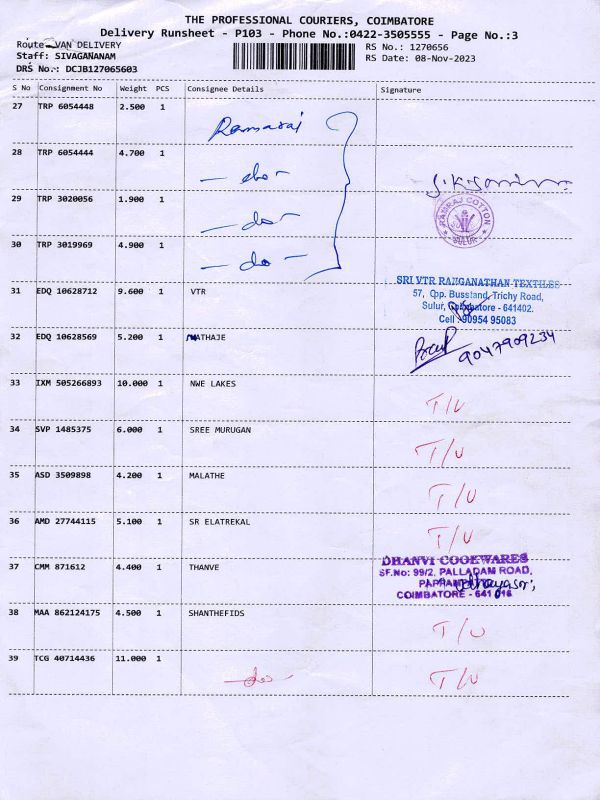 THE PROFESSIONAL COURIERS, COIMBATORE
Delivery Runsheet - P103 - Phone No.:0422-3505555 - Page No.:3
Route: VAN DELIVERY RS No.: 1270656
Staff: SIVAGANANAM RS Date: 08-Nov-2023
DRS No.: DCJB127065603
S No Consignment No Weight PCS Consignee Details Signature
27 TRP 6054448 2.500 1 Ramaraj
28 TRP 6054444 4.700 1
29 TRP 3020056 1.900 1 - do -
RAMRAJ COTTON
SULUR
30 TRP 3019969 4.900 1 - do -
31 EDQ 10628712 9.600 1 VTR
SRI VTR RANGANATHAN TEXTILES
57, Opp. Busstand, Trichy Road,
Sulur, Coimbatore - 641402.
Cell : 90954 95083
32 EDQ 10628569 5.200 1 MATHAJE 9047909234
33 IXM 505266893 10.000 1 NWE LAKES T/U
34 SVP 1485375 6.000 1 SREE MURUGAN T/U
35 ASD 3509898 4.200 1 MALATHE T/U
36 AMD 27744115 5.100 1 SR ELATREKAL T/U
37 CMM 871612 4.400 1 THANVE
DHANVI COOKWARES
SF.No: 99/2, PALLADAM ROAD,
COIMBATORE - 641 016
38 MAA 862124175 4.500 1 SHANTHEFIDS T/U
39 TCG 40714436 11.000 1 - do - T/U